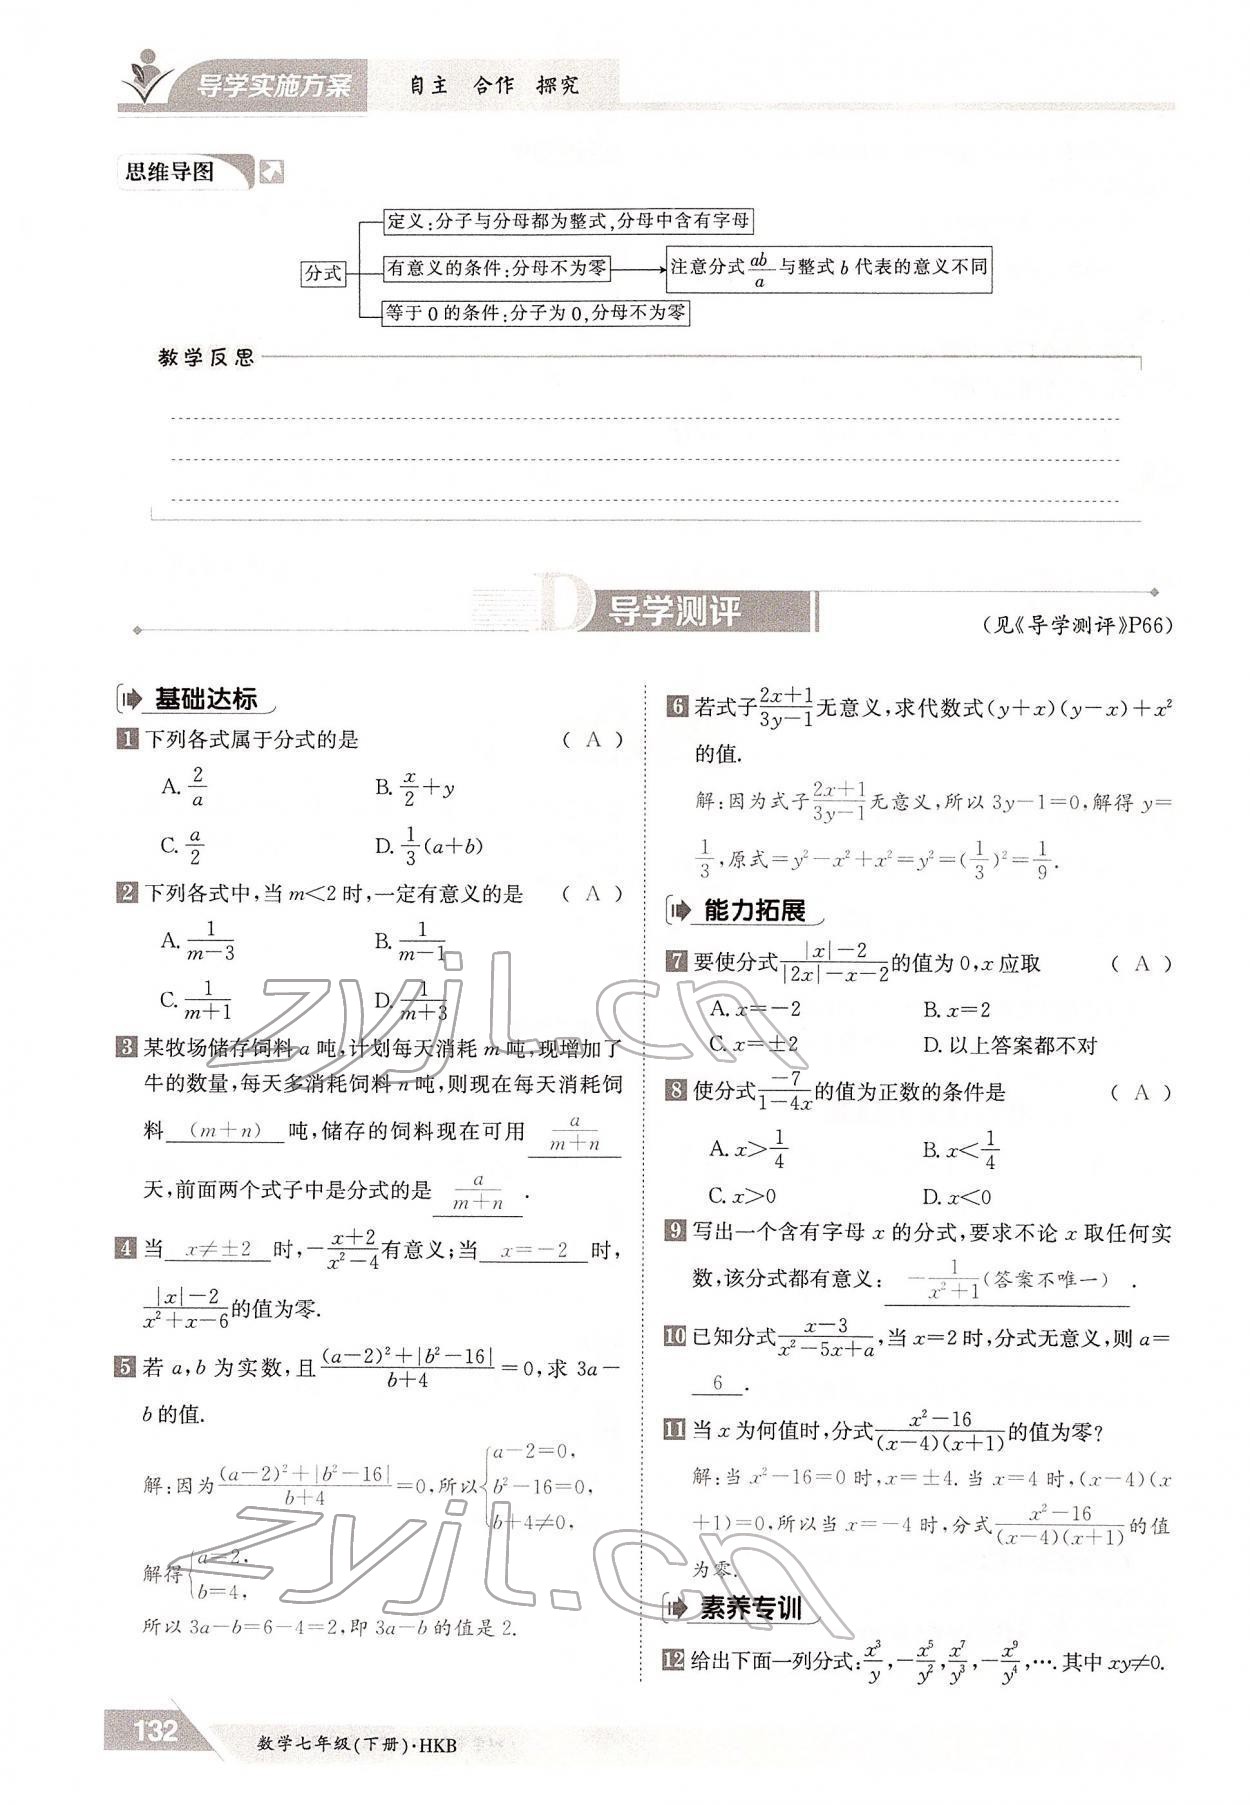 导学实施方案 自主 合作 探究
思维导图
定义:分子与分母都为整式,分母中含有字母
分式 有意义的条件:分母不为零 注意分式ab/a与整式b代表的意义不同
等于0的条件:分子为0,分母不为零
教学反思
D 导学测评
(见《导学测评》P66)
基础达标
1 下列各式属于分式的是 ( A )
A. 2/a B. x/2+y
C. a/2 D. 1/3(a+b)
2 下列各式中,当m<2时,一定有意义的是 ( A )
A. 1/(m-3) B. 1/(m-1)
C. 1/(m+1) D. 1/(m+3)
3 某牧场储存饲料a吨,计划每天消耗m吨,现增加了
牛的数量,每天多消耗饲料n吨,则现在每天消耗饲
料 (m+n) 吨,储存的饲料现在可用 a/(m+n)
天,前面两个式子中是分式的是 a/(m+n) .
4 当 x≠±2 时,-(x+2)/(x²-4)有意义;当 x=-2 时,
(|x|-2)/(x²+x-6)的值为零.
5 若a,b为实数,且((a-2)²+|b²-16|)/(b+4)=0,求3a-
b的值.
解:因为((a-2)²+|b²-16|)/(b+4)=0,所以{a-2=0,
b²-16=0,
b+4≠0,
解得{a=2,
b=4,
所以3a-b=6-4=2,即3a-b的值是2.
6 若式子(2x+1)/(3y-1)无意义,求代数式(y+x)(y-x)+x²
的值.
解:因为式子(2x+1)/(3y-1)无意义,所以3y-1=0,解得y=
1/3,原式=y²-x²+x²=y²=(1/3)²=1/9.
能力拓展
7 要使分式(|x|-2)/(|2x|-x-2)的值为0,x应取 ( A )
A. x=-2 B. x=2
C. x=±2 D. 以上答案都不对
8 使分式-7/(1-4x)的值为正数的条件是 ( A )
A. x>1/4 B. x<1/4
C. x>0 D. x<0
9 写出一个含有字母x的分式,要求不论x取任何实
数,该分式都有意义: -1/(x²+1)(答案不唯一) .
10 已知分式(x-3)/(x²-5x+a),当x=2时,分式无意义,则a=
6 .
11 当x为何值时,分式(x²-16)/((x-4)(x+1))的值为零?
解:当x²-16=0时,x=±4.当x=4时,(x-4)(x
+1)=0,所以当x=-4时,分式(x²-16)/((x-4)(x+1))的值
为零.
素养专训
12 给出下面一列分式:x³/y,-x⁵/y²,x⁷/y³,-x⁹/y⁴,….其中xy≠0.
zyjl.cn
zyjl.cn
132 数学七年级(下册)·HKB